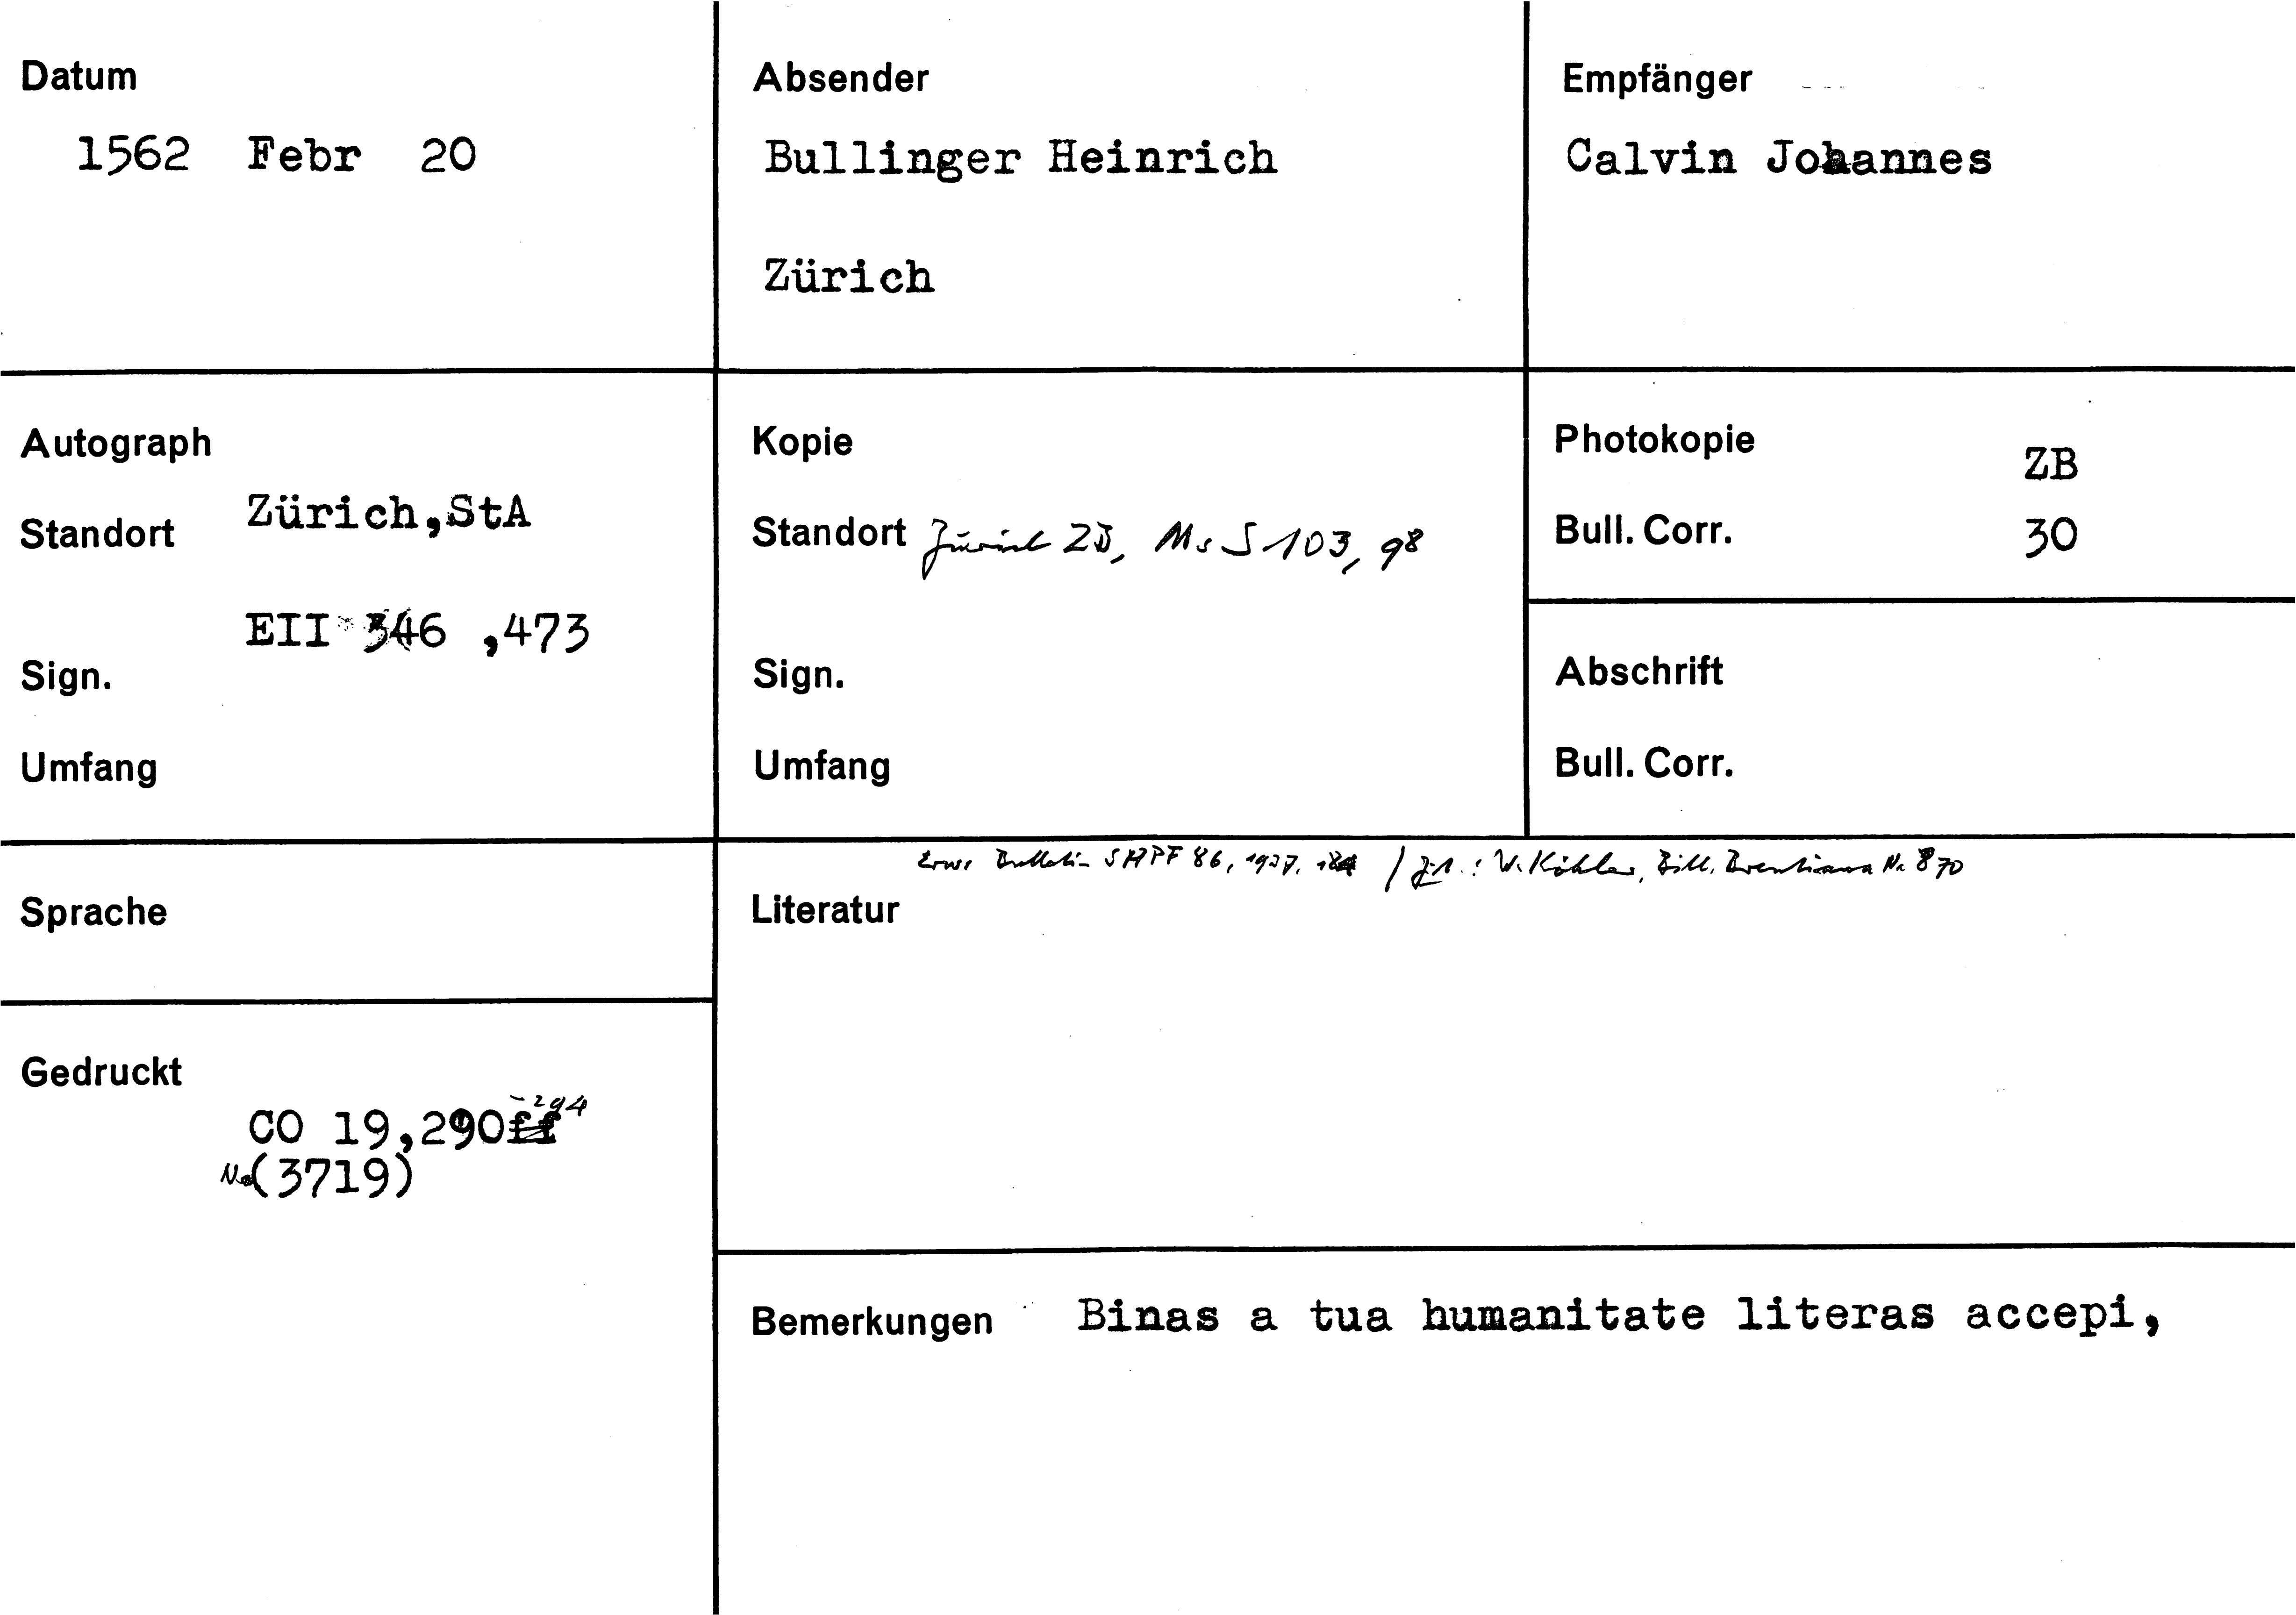 Datum
1562 Febr 20
Absender
Bullinger Heinrich
Zürich
Empfänger
Calvin Johannes
Autograph
Standort Zürich,StA
EII 346 ,473
Sign.
Umfang
Kopie
Standort Zürich ZB, Ms S 103, 98
Sign.
Umfang
Photokopie ZB
Bull. Corr. 30
Abschrift
Bull. Corr.
Sprache
Erw. Bulletin SHPF 86, 1937, / Zit.: W. Köhler, Bibl. Brentiana Nr. 870
Literatur
Gedruckt
CO 19,290-294
No(3719)
Bemerkungen Binas a tua humanitate literas accepi,